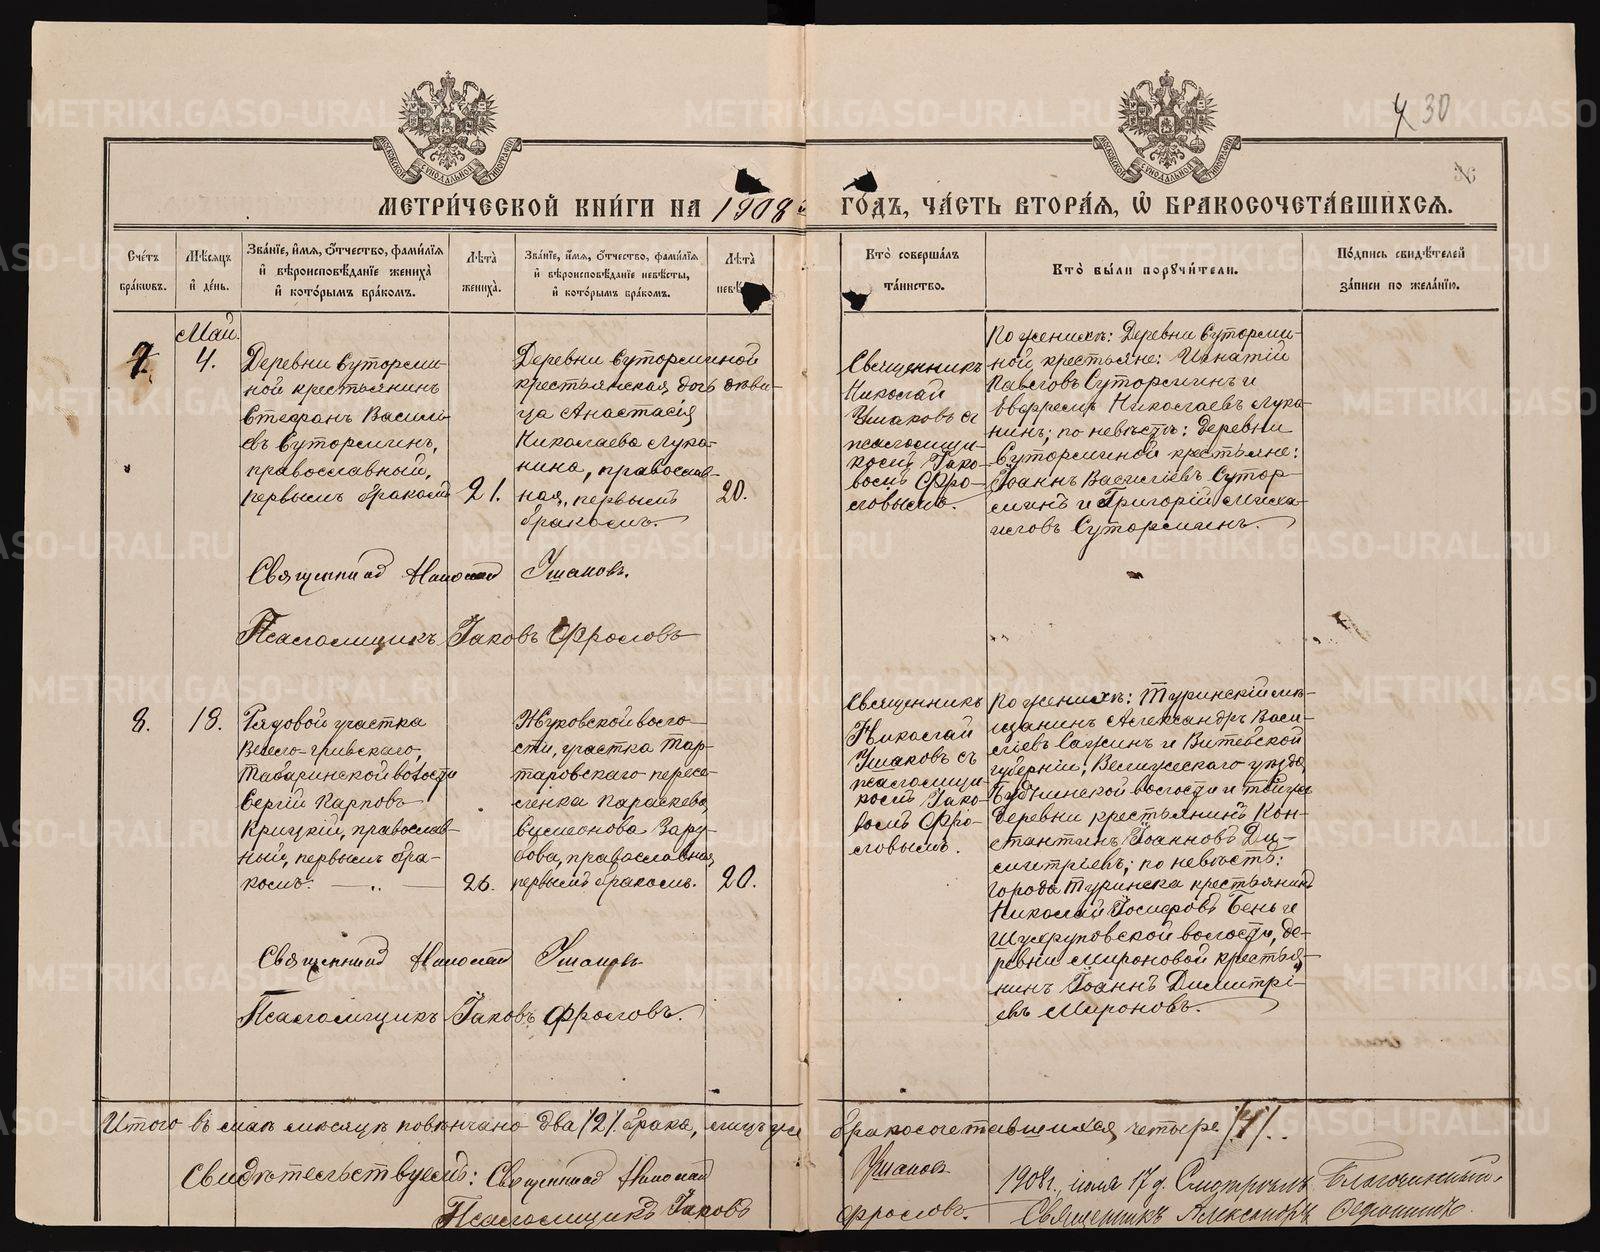 4 30
36
МЕТРИ́ЧЕСКОЙ КНИ́ГИ НА 1908 ГО́ДЪ, ЧА́СТЬ ВТОРА́Я, Ѡ БРАКОСОЧЕТА́ВШИХСЯ.
Сче́тъ бра́кѡвъ.
Мѣ́сяцъ и҆ де́нь.
Зва́нїе, и҆́мя, ѻ҆́тчество, фами́лїя
и҆ вѣроисповѣ́данїе жениха̀
и҆ кото́рымъ бра́комъ.
Лѣ́та жениха̀.
Зва́нїе, и҆́мя, ѻ҆́тчество, фами́лїя
и҆ вѣроисповѣ́данїе невѣ́сты,
и҆ кото́рымъ бра́комъ.
Лѣ́та
Кто̀ соверша́лъ
та́инство.
Кто̀ бы́ли порꙋчи́тели.
По́дпись свидѣ́телей
за́писи по жела́нїю.
7.
Май
4.
Деревни Суторми-
ной крестьянинъ
Стефанъ Василi-
евъ Суторминъ,
православный,
первымъ бракомъ
21.
Деревни Суторминой
крестьянская дочь дѣви-
ца Анастасія
Николаева Лука-
нина, православ-
ная, первымъ
бракомъ.
20.
Священникъ
Николай
Ушаковъ съ
псаломщи-
комъ Іако-
вомъ Фро-
ловымъ.
По женихѣ: Деревни Суторми-
ной, крестьяне: Игнатій
Павловъ Суторминъ и
Евфремъ Николаевъ Лука-
нинъ; по невѣстѣ: деревни
Суторминой крестьяне:
Іоаннъ Василіевъ Сутор-
минъ и Григорій Миха-
иловъ Суторминъ.
Священникъ Николай Ушаковъ.
Псаломщикъ Іаковъ Фроловъ
8.
18.
Рядовой участка
Таборинской волости
Сергій Карповъ
Крицкій, православ-
ный, первымъ бра-
комъ.
26.
Жуковской воло-
сти, участка Тар-
таровскаго пересе-
ленка Параскева
Сумеонова Зару-
бова, православная,
первымъ бракомъ.
20.
Священникъ
Николай
Ушаковъ съ
псаломщи-
комъ Іако-
вомъ Фро-
ловымъ.
По женихѣ: Туринскій мѣ-
щанинъ Александръ Васи-
ліевъ Сажинъ и Витебской
губерніи, Велижескаго уѣзда,
Будницкой волости и той же
деревни крестьянинъ Кон-
стантинъ Іоанновъ Ди-
митріевъ; по невѣстѣ:
города Туринска крестьянинъ
Николай Іосифовъ Бень и
Шухруповской волости, де-
ревни Мироновой крестья-
нинъ Іоаннъ Димитрі-
евъ Мироновъ.
Священникъ Николай Ушаковъ
Псаломщикъ Іаковъ Фроловъ.
Итого въ маѣ мѣсяцѣ повѣнчано два /2/ брака, лицъ же бракосочетавшихся четыре /4/.
Свидѣтельствуемъ: Священникъ Николай Ушаковъ
Псаломщикъ Іаковъ Фроловъ.
1908 г., іюля 17 д. Смотрѣлъ Благочинный,
Священникъ Александръ